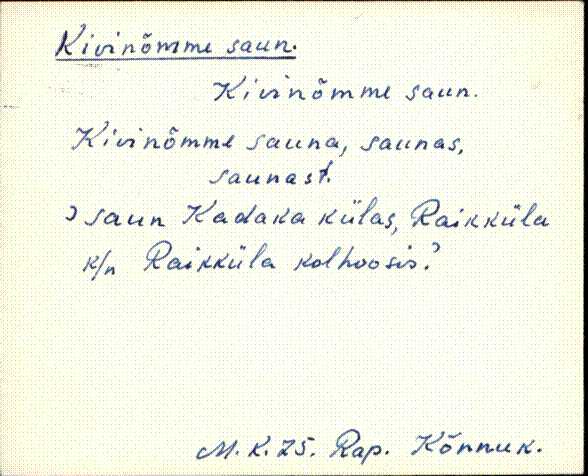 Kivinõmme saun.
Kivinõmme saun.
Kivinõmme sauna, saunas,
saunast.
? saun Kadaka külas, Raikküla
k/n Raikküla kolhoosis.?
M. K. 75. Rap. Kõnnuk.